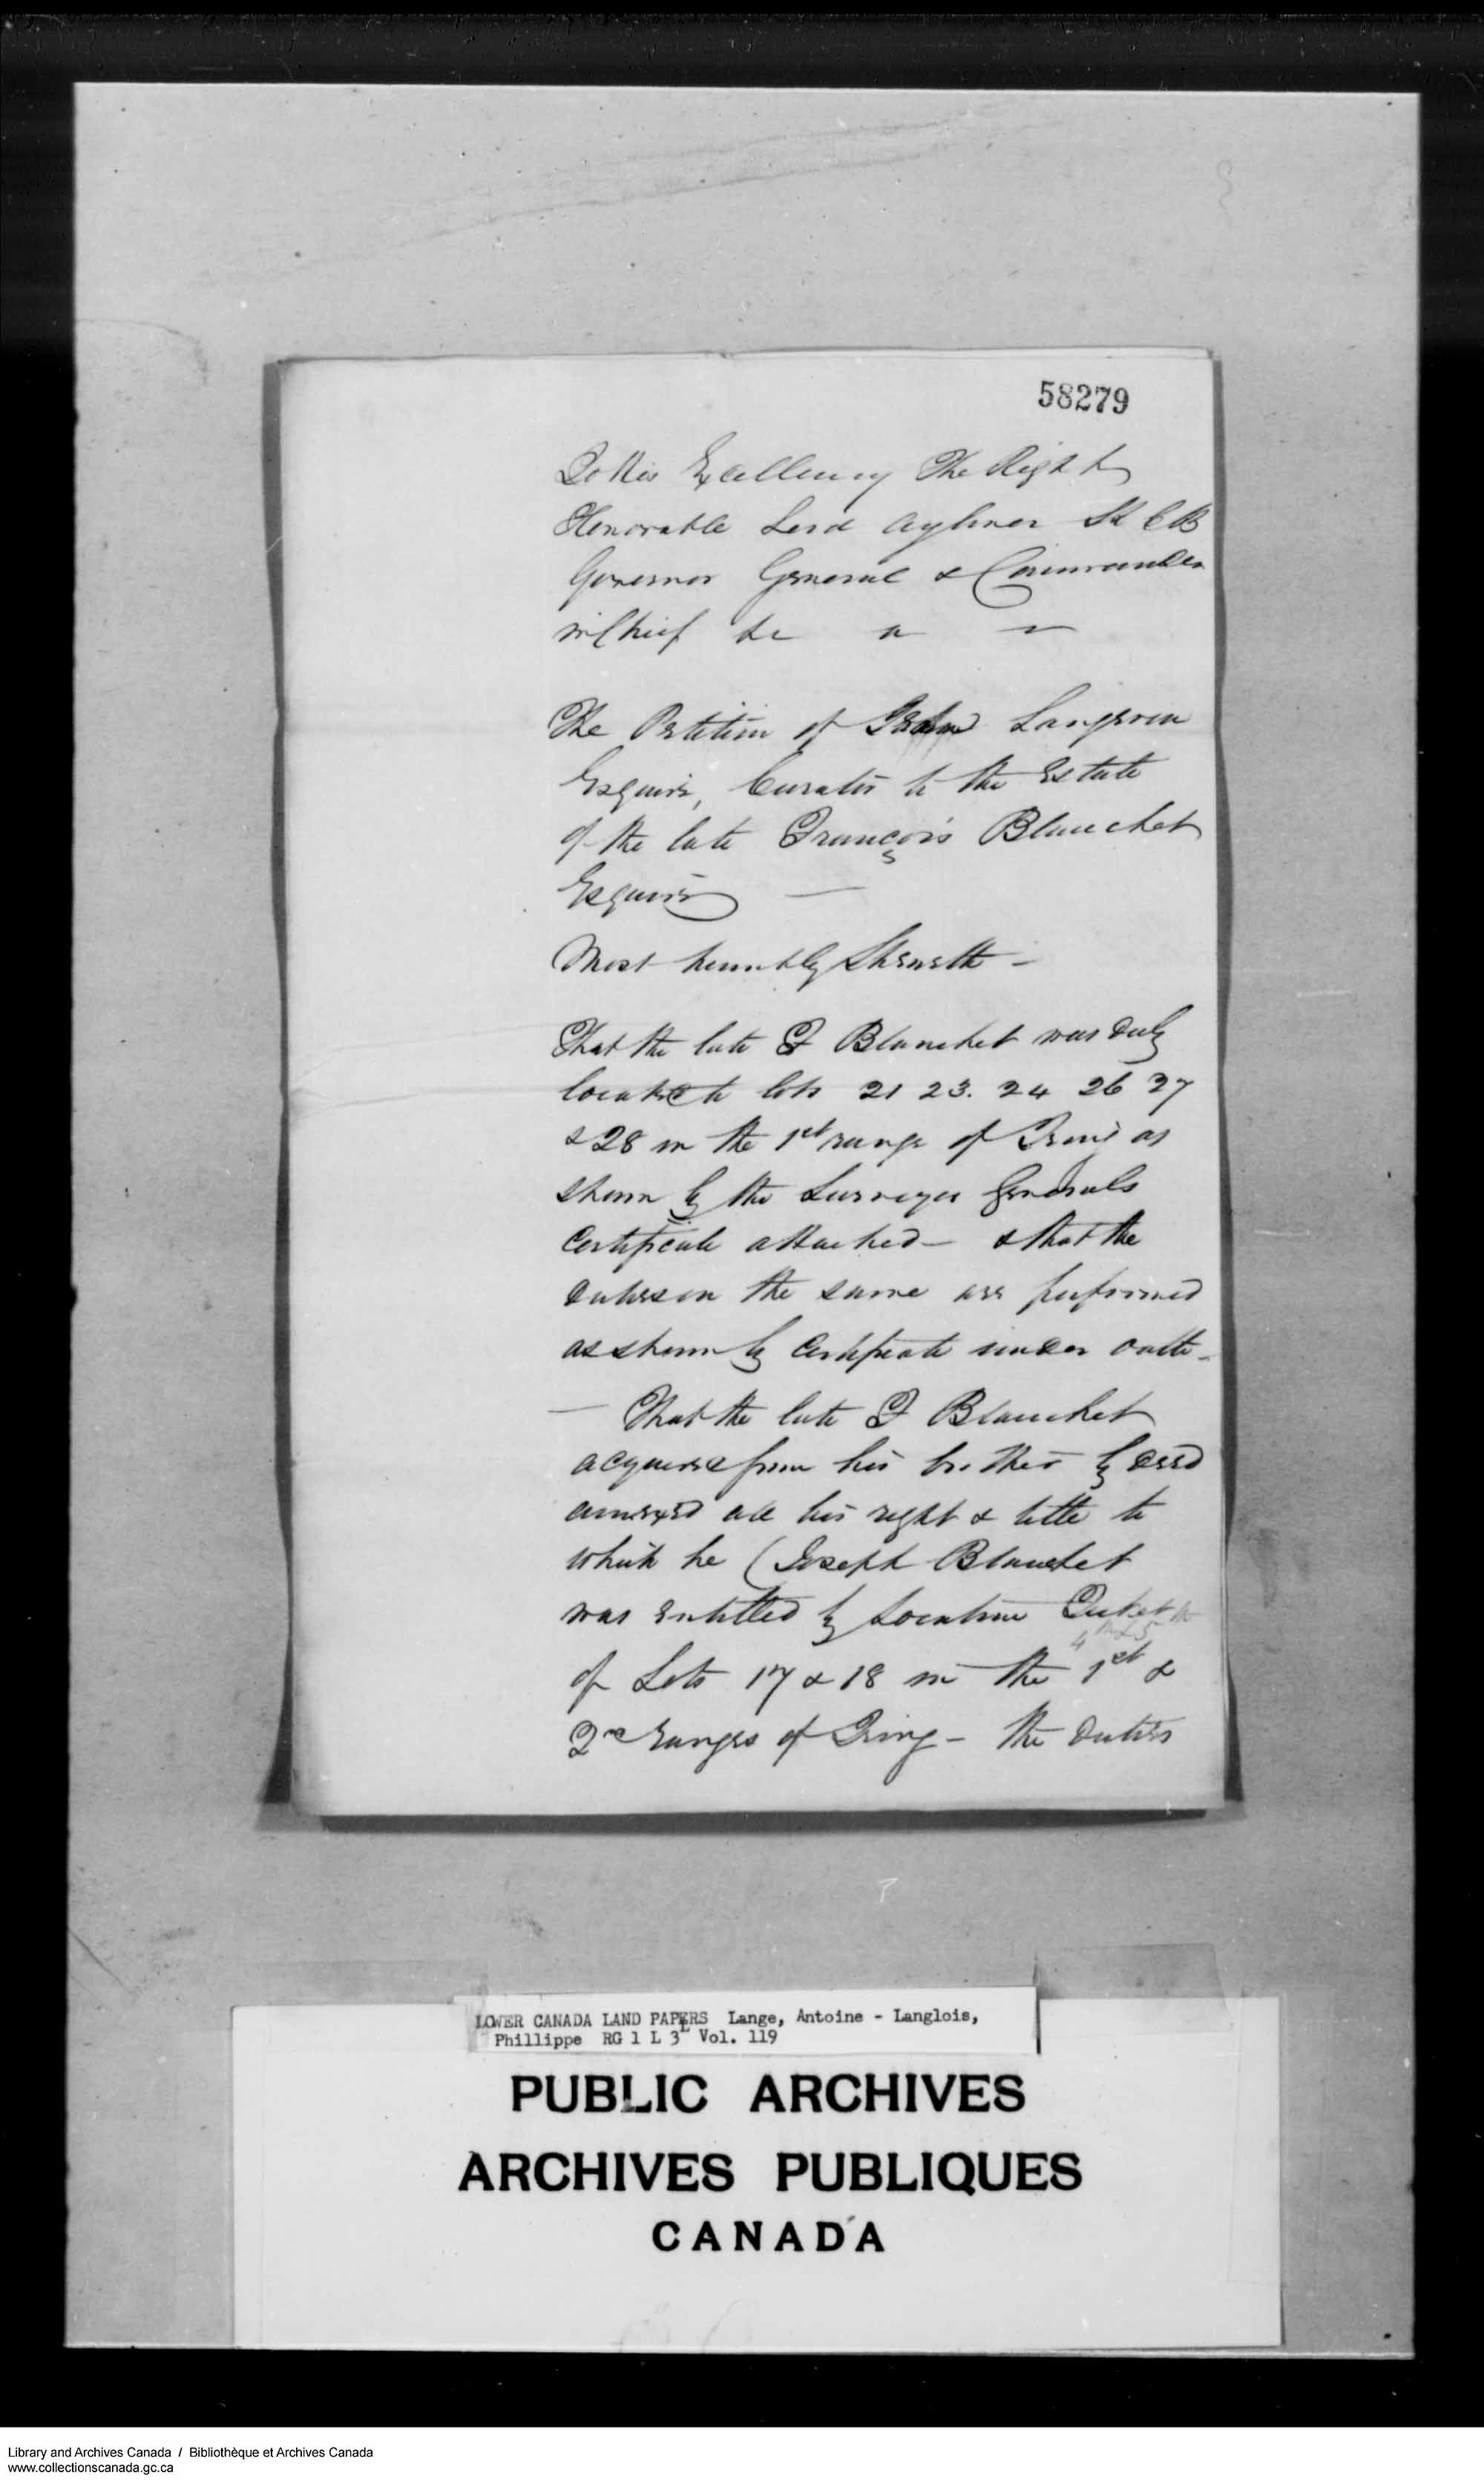 58279
To His Excellency The Right
Honorable Lord Aylmer K C B
Governor General & Commander
in Chief &c &c &c
The Petition of Langevin
Esquire, Curator to the Estate
of the late François Blanchet
Esquire —
Most humbly Sheweth —
That the late F Blanchet was duly
located to lots 21 23. 24 26 27
& 28 in the 1st range of Tring as
shewn by the Surveyor Generals
Certificate attached — & that the
duties on the same are performed
as shewn by Certificate under oath —
— That the late F Blanchet
acquired from his brother by deed
annexed all his right & title to
which he (Joseph Blanchet
was entitled by Location Ticket
4th & 5
of Lots 17 & 18 in the 1st &
2nd ranges of Tring — the duties
LOWER CANADA LAND PAPERS Lange, Antoine - Langlois,
Phillippe RG 1 L 3L Vol. 119
PUBLIC ARCHIVES
ARCHIVES PUBLIQUES
CANADA
Library and Archives Canada / Bibliothèque et Archives Canada
www.collectionscanada.gc.ca